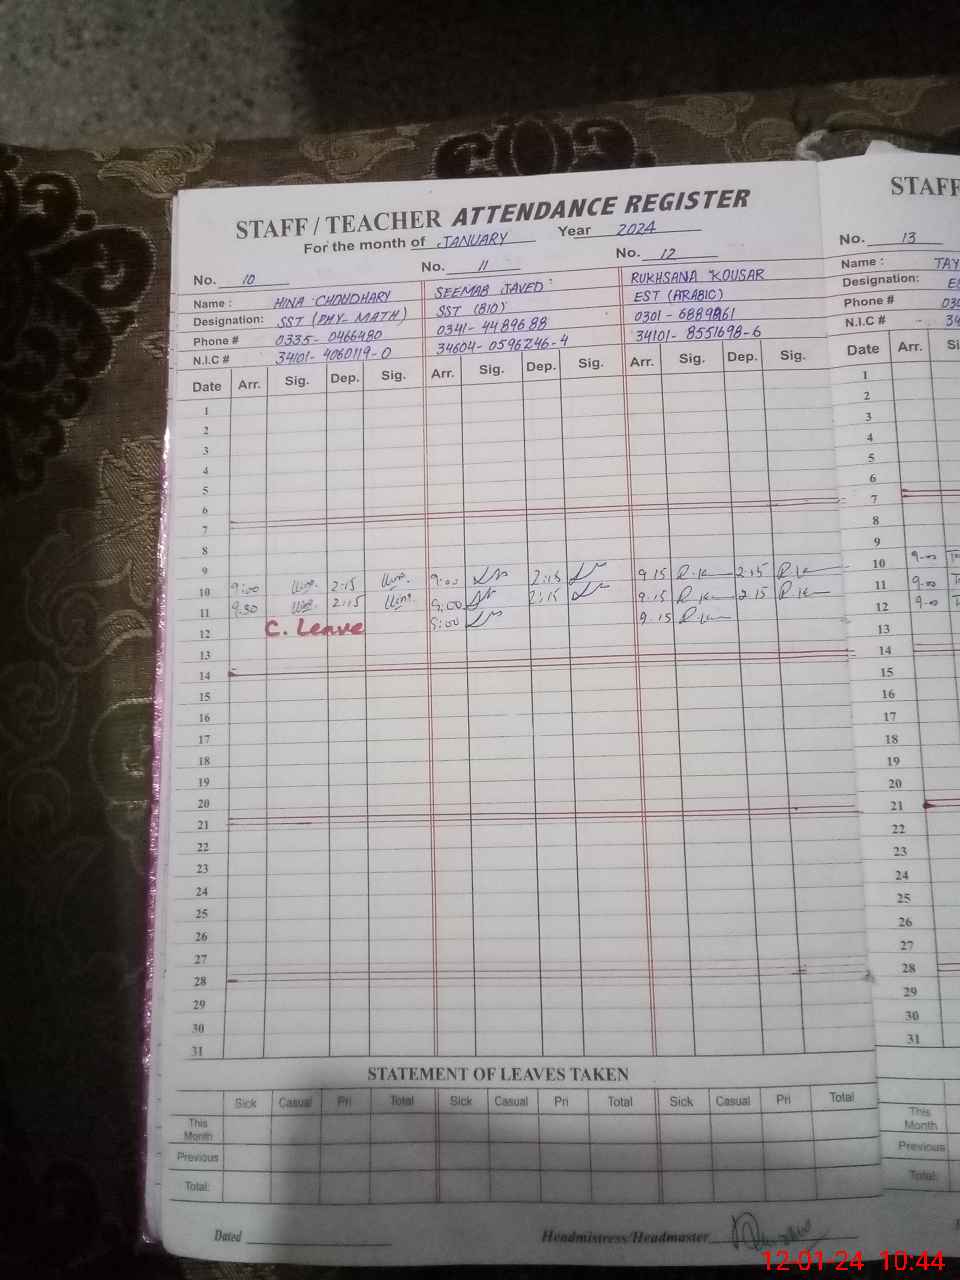 STAFF / TEACHER ATTENDANCE REGISTER
For the month of JANUARY Year 2024
No. 10 No. 11 No. 12
Name : HINA CHOUDHARY SEEMAB JAVED RUKHSANA KOUSAR
Designation: SST (PHY-MATH) SST (BIO) EST (ARABIC)
Phone # 0335-0466480 0341-4489688 0301-6889861
N.I.C # 34101-4060119-0 34604-0596246-4 34101-8551698-6
Date Arr. Sig. Dep. Sig. Arr. Sig. Dep. Sig. Arr. Sig. Dep. Sig.
1
2
3
4
5
6
7
8
9
10 9:00 2:15 9:00 2:15 9.15 R.K 2.15 R.K
11 9.30 2:15 9:00 2:15 9.15 R.K 2.15 R.K
12 C. Leave 9:00 9.15 R.K
13
14
15
16
17
18
19
20
21
22
23
24
25
26
27
28
29
30
31
STATEMENT OF LEAVES TAKEN
Sick Casual Pri Total Sick Casual Pri Total Sick Casual Pri Total
This Month
Previous
Total:
Dated Headmistress/Headmaster
STAFF
No. 13
Name : TAY
Designation:
Phone # 030
N.I.C # 34
Date Arr.
1
2
3
4
5
6
7
8
9
10 9-00
11 9-00
12 9-00
13
14
15
16
17
18
19
20
21
22
23
24
25
26
27
28
29
30
31
This Month
Previous
Total:
12-01-24 10:44